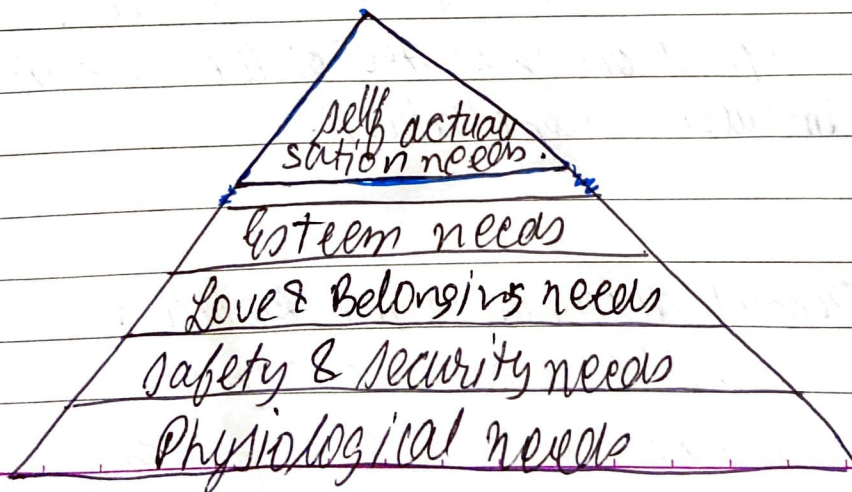 self actuali
sation needs.
Esteem needs
Love & Belonging needs
safety & security needs
Physiological needs